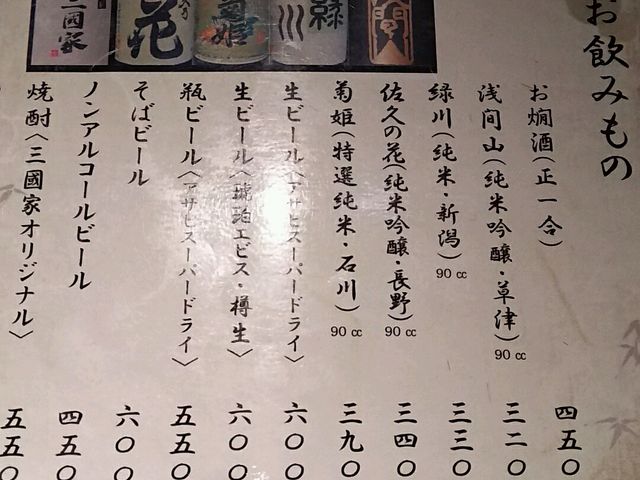 お飲みもの
お燗酒(正一合)
四五〇
浅间山(純米吟醸・草津)90cc
三二〇
緑川(純米・新潟)90cc
三三〇
佐久の花(純米吟醸・長野)90cc
三四〇
菊姫(特選純米・石川)90cc
三九〇
生ビール〈アサヒスーパードライ〉
六〇〇
生ビール〈琥珀ヱビス・樽生〉
六〇〇
瓶ビール〈アサヒスーパードライ〉
五五〇
そばビール
六〇〇
ノンアルコールビール
四五〇
焼酎〈三國家オリジナル〉
五五〇
緑川
菊姫
花
三國家